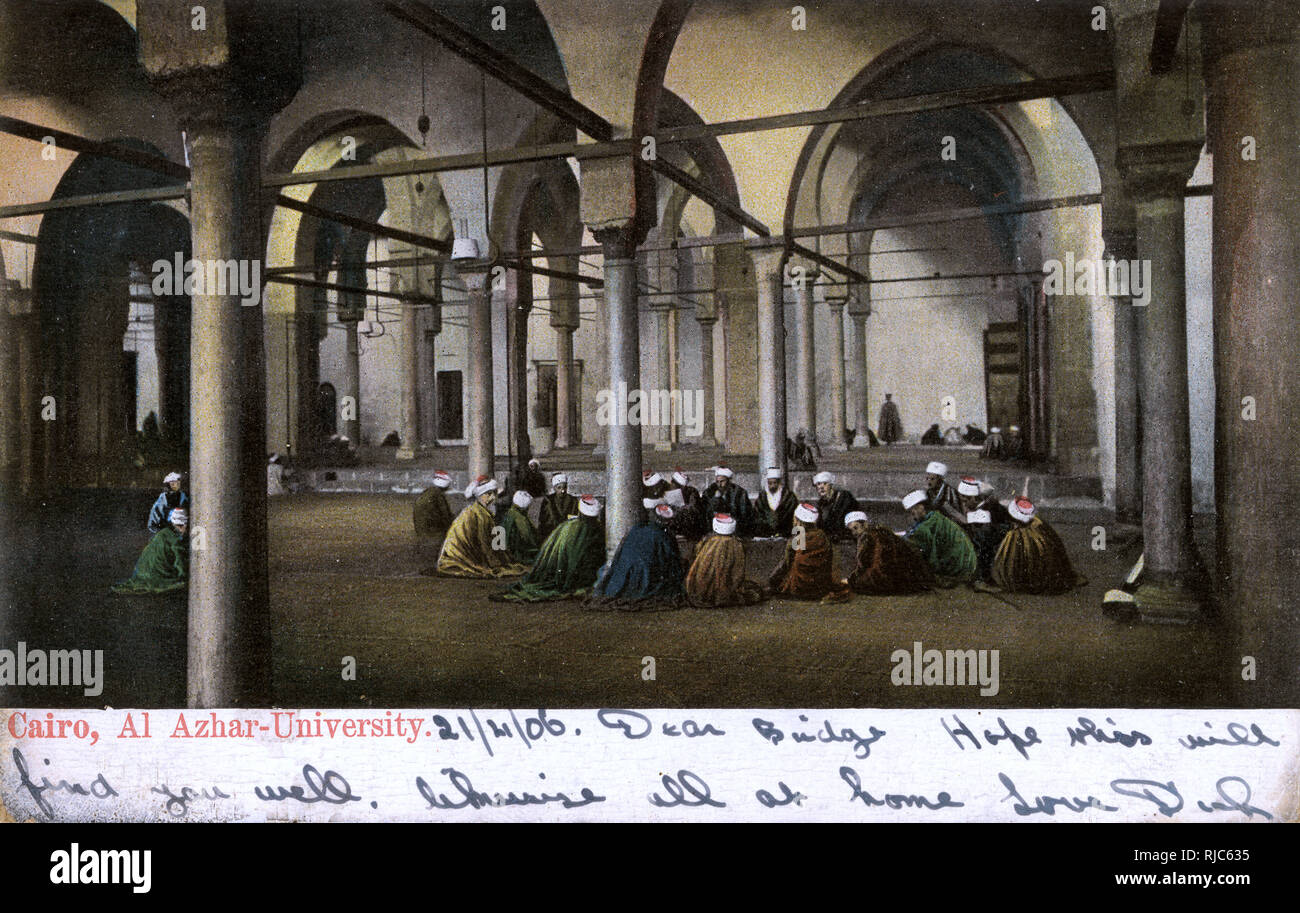 alamy
alamy
Cairo, Al Azhar-University. 21/4/06. Dear Bridge Hope this will
find you well. likewise all at home Love
alamy
Image ID: RJC635
www.alamy.com